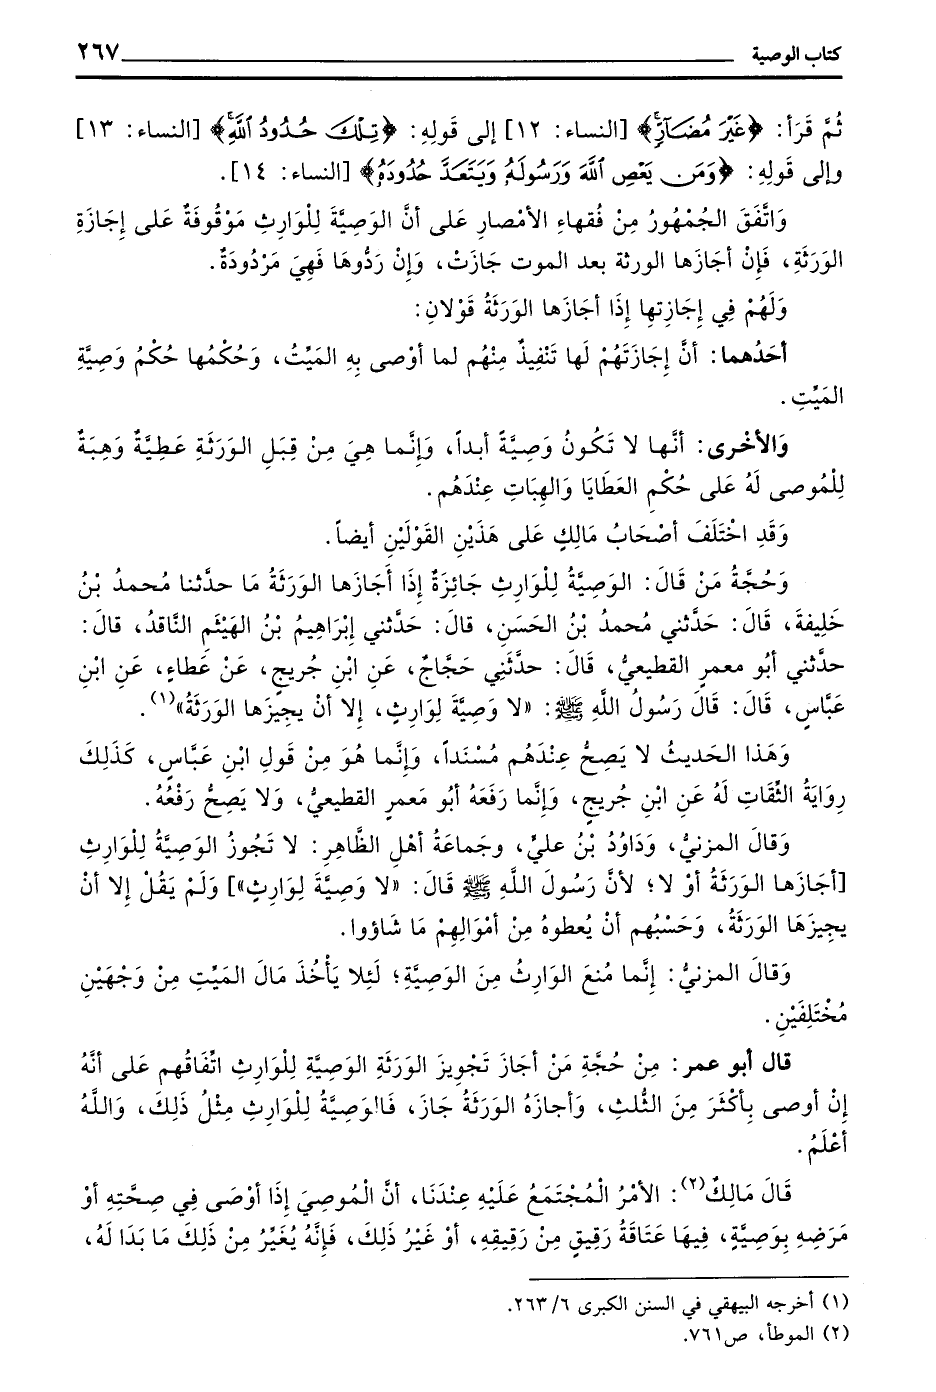 كتاب الوصية ٢٦٧
ثُمَّ قَرَأَ: ﴿غَيْرَ مُضَآرٍّۚ﴾ [النساء: ١٢] إلى قَولِهِ: ﴿تِلْكَ حُدُودُ ٱللَّهِۚ﴾ [النساء: ١٣]
وإلى قَولِهِ: ﴿وَمَن يَعْصِ ٱللَّهَ وَرَسُولَهُۥ وَيَتَعَدَّ حُدُودَهُۥ﴾ [النساء: ١٤].
وَاتَّفَقَ الجُمْهُورُ مِنْ فُقهاءِ الأمْصارِ عَلى أنَّ الوَصِيَّةَ لِلْوَارِثِ مَوْقُوفَةٌ عَلى إجَازَةِ
الوَرَثَةِ، فَإنْ أجَازَها الورثة بعد الموت جَازَتْ، وَإنْ رَدُّوهَا فَهِيَ مَرْدُودَةٌ.
وَلَهُمْ فِي إجَازِتِها إذَا أجَازَها الوَرَثَةُ قَوْلانِ:
أحَدُهما: أنَّ إجَازَتَهُمْ لَها تَنْفِيذٌ مِنْهُم لما أوْصى بِهِ المَيِّتُ، وَحُكْمُها حُكْمُ وَصِيَّةِ
المَيِّتِ.
وَالأخْرى: أنَّها لا تَكُونُ وَصِيَّةً أبداً، وَإنَّما هِيَ مِنْ قِبَلِ الوَرَثَةِ عَطِيَّةٌ وَهِبَةٌ
لِلْمُوصى لَهُ عَلى حُكْمِ العَطَايا وَالهِبَاتِ عِنْدَهُم.
وَقَدِ اخْتَلَفَ أصْحَابُ مَالِكٍ عَلى هَذَيْنِ القَوْلَيْنِ أيضاً.
وَحُجَّةُ مَنْ قَالَ: الوَصِيَّةُ لِلْوارِثِ جَائِزَةٌ إذَا أجَازَها الوَرَثَةُ مَا حدَّثنا محمدُ بْنُ
خَلِيفةَ، قَالَ: حَدَّثني مُحمدُ بْنُ الحَسَنِ، قالَ: حَدَّثني إبْرَاهِيمُ بْنُ الهَيْثَمِ النَّاقدُ، قالَ:
حدَّثني أبُو معمرٍ القطيعيُّ، قَالَ: حدَّثَنِي حَجَّاجٌ، عَنِ ابْنِ جُريجٍ، عَنْ عَطاءٍ، عَنِ ابْنِ
عَبَّاسٍ، قَالَ: قَالَ رَسُولُ اللَّهِ ﷺ: «لا وَصِيَّةَ لِوَارِثٍ، إلا أنْ يجِيزَها الوَرَثَةُ»(١).
وَهَذا الحَديثُ لا يَصِحُّ عِنْدَهُم مُسْنَداً، وَإنَّما هُوَ مِنْ قَولِ ابْنِ عَبَّاسٍ، كَذَلِكَ
رِوَايَةُ الثِّقَاتِ لَهُ عَنِ ابْنِ جُريجٍ، وَإنَّما رَفَعَهُ أبُو مَعمرٍ القطيعيُّ، وَلا يَصِحُّ رَفْعُهُ.
وَقالَ المزنيُّ، وَدَاوُدُ بْنُ عليٍّ، وجَماعَةُ أهْلِ الظَّاهِرِ: لا تَجُوز الوَصِيَّةُ لِلْوارِثِ
[أجَازَها الوَرَثَةُ أوْ لا؛ لأنَّ رَسُولَ اللَّهِ ﷺ قَالَ: «لا وَصِيَّةَ لِوَارِثٍ»] وَلَمْ يَقُلْ إلا أنْ
يجِيزَهَا الوَرَثَةُ، وَحَسْبُهم أنْ يُعطوهُ مِنْ أمْوَالِهِمْ مَا شَاؤوا.
وَقالَ المزنيُّ: إنَّما مُنعَ الوَارِثُ مِنَ الوَصِيَّةِ؛ لَئِلا يَأْخُذَ مَالَ المَيِّتِ مِنْ وَجْهَيْنِ
مُخْتَلِفَيْنِ.
قال أبو عمر: مِنْ حُجَّةِ مَنْ أجَازَ تَجْوِيزَ الوَرَثَةِ الوَصِيَّةِ لِلْوَارِثِ اتِّفَاقُهم عَلى أنَّهُ
إنْ أوصى بِأكْثَرَ مِنَ الثُلثِ، وَأجازَهُ الوَرَثَةُ جَازَ، فَالوَصِيَّةُ لِلْوارِثِ مِثْلُ ذَلِكَ، وَاللَّهُ
أعْلَمُ.
قَالَ مَالِكٌ(٢): الأمْرُ الْمُجْتَمَعُ عَلَيْهِ عِنْدَنَا، أنَّ الْمُوصِيَ إذَا أوْصَى فِي صِحَّتِهِ أوْ
مَرَضِهِ بِوَصِيَّةٍ، فِيهَا عَتَاقَةُ رَقِيقٍ مِنْ رَقِيقِهِ، أوْ غَيْرُ ذَلِكَ، فَإنَّهُ يُغَيِّرُ مِنْ ذَلِكَ مَا بَدَا لَهُ،
(١) أخرجه البيهقي في السنن الكبرى ٦/ ٢٦٣.
(٢) الموطأ، ص٧٦١.